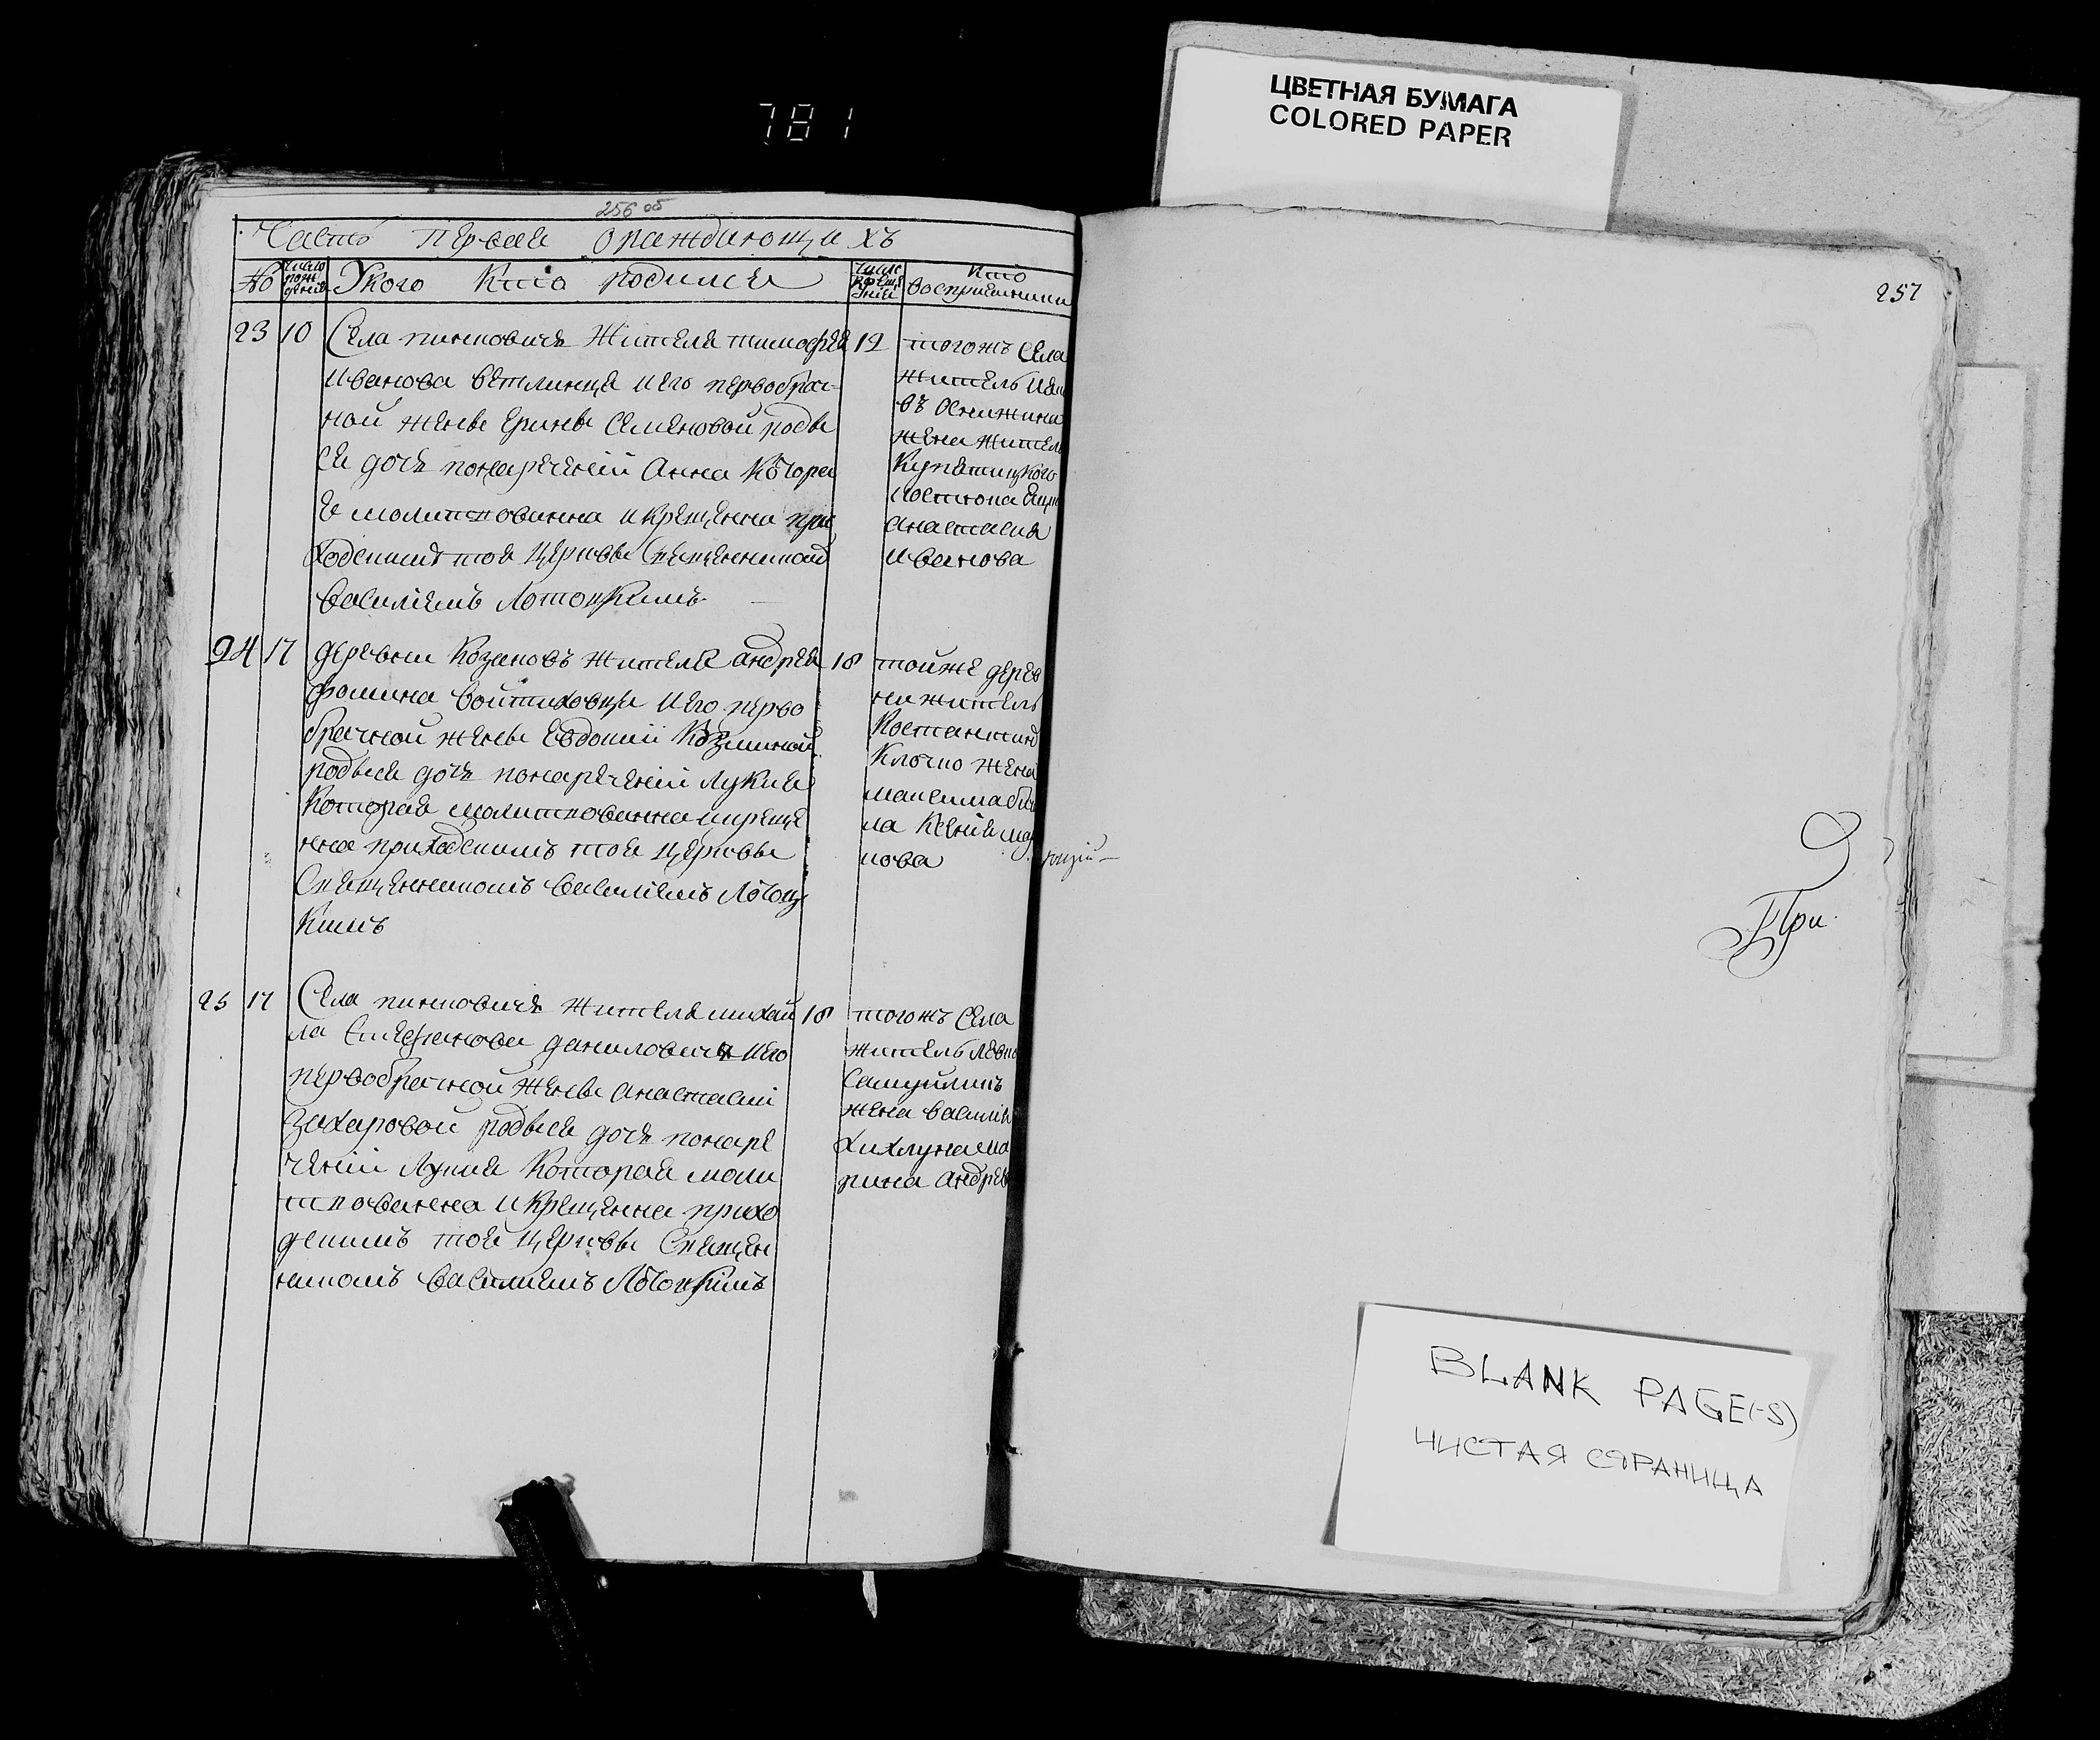 781
ЦВЕТНАЯ БУМАГА
COLORED PAPER
256 об
Часть Первая Ораждающихъ
№ Число рождения Укого Кто родился Число крещения Кто восприемники
257
23 10 Села пинковичъ Жителя тимофея 12
Иванова ветлинца иего первобрач-
ной женѣ Еринѣ Семеновой родъ
ся дочь понареченій Анна Котора
я молитвованна икрещенна при
ходскимъ тоя церквѣ Священникомъ
Василіемъ Лотоцкимъ
тогожъ Села
житель
жена жителя
Купятицкого
анастасия
иванова
24 17 деревни Козляковъ жителя андрея 18
фомина войтиховца иего перво
брачной женѣ Евдокии Козминой
родъся дочь понареченій Лукия
Которая молитвованна икреще
нна приходскимъ тоя церквѣ
Священникомъ василіемъ Лотоц
Кимъ
тойже дерев
ни житель
Костантинъ
Клочко жена
нова
25 17 Села пинковичъ жителя михай 18
ла Стефанова даниловича иего
первобрачной женѣ анастасіи
Захаровой родъся дочь понаре
ченіи Лукия Которая моли
твованна икрещенна прихо
дскимъ тоя церквѣ Священ
никомъ Василиемъ Лотоцкимъ
тогожъ Села
житель
Самуйликъ
жена василія
рина андрѣе
При
BLANK PAGE(-S)
ЧИСТАЯ СТРАНИЦА